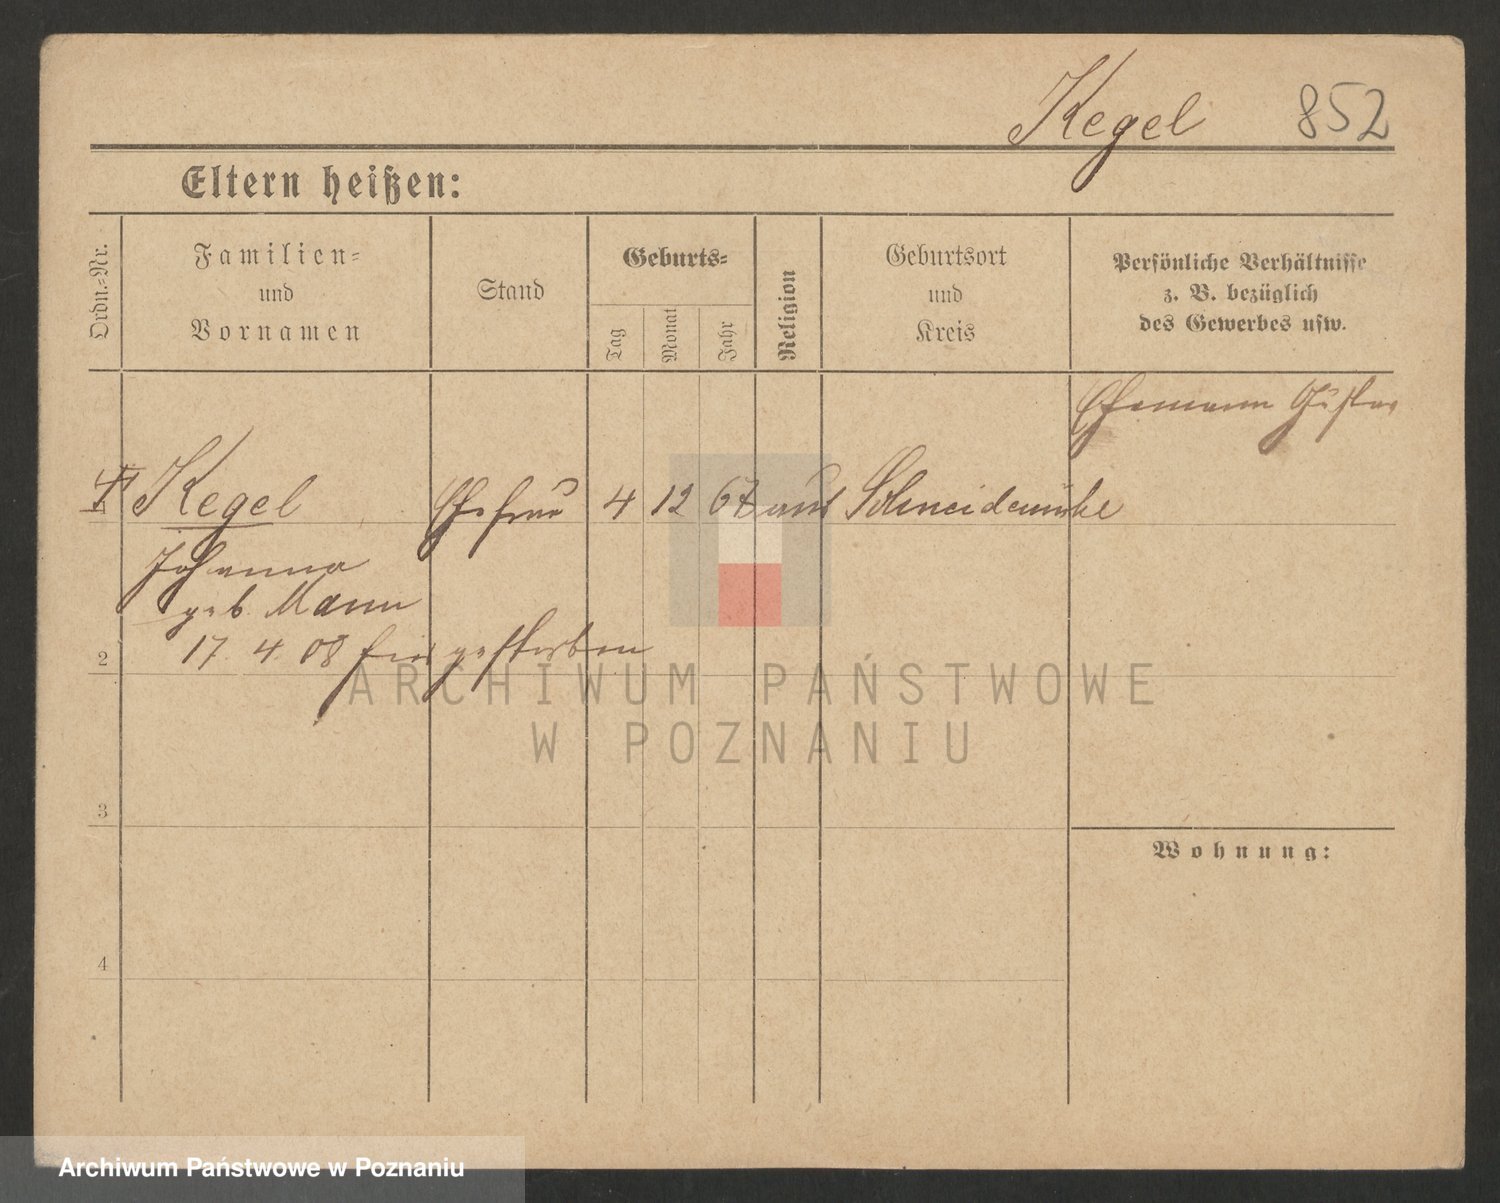 Kegel 852
Eltern heißen:
Ordn.-Nr.
Familien-
und
Vornamen
Stand
Geburts-
Tag
Monat
Jahr
Religion
Geburtsort
und
Kreis
Persönliche Verhältnisse
z. B. bezüglich
des Gewerbes usw.
Ehemann Gustav
1 Kegel Ehefrau 4 12 67 Schneidemühl
Johanna
geb. Mann
2 17. 4. 08 hier gestorben
3
Wohnung:
4
ARCHIWUM PAŃSTWOWE
W POZNANIU
Archiwum Państwowe w Poznaniu